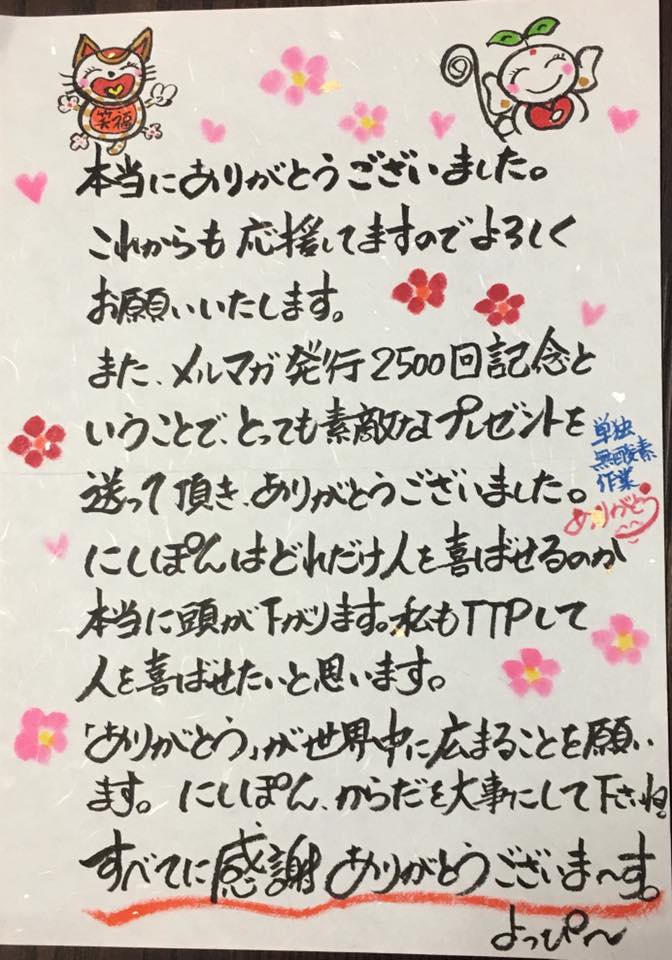 笑福
本当にありがとうございました。
これからも応援してますのでよろしく
お願いいたします。
また、メルマガ発行2500回記念と
いうことで、とっても素敵なプレゼントを
送って頂き、ありがとうございました。
にしぽんはどれだけ人を喜ばせるのか
本当に頭が下がります。私もTTPして
人を喜ばせたいと思います。
「ありがとう」が世界中に広まることを願い
ます。にしぽん、からだを大事にして下さいね。
すべてに感謝ありがとうございま〜す。
よっぴ〜
単独
無酸素
作業
ありがとう